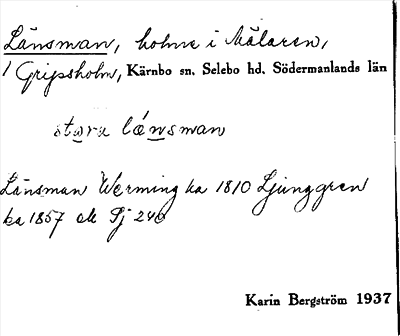 Länsman, holme i Mälaren,
/ Gripsholm, Kärnbo sn. Selebo hd. Södermanlands län
stora lánsman
Länsman Werming ka 1810 Ljunggren
ka 1857 ek Sj 240
Karin Bergström 1937